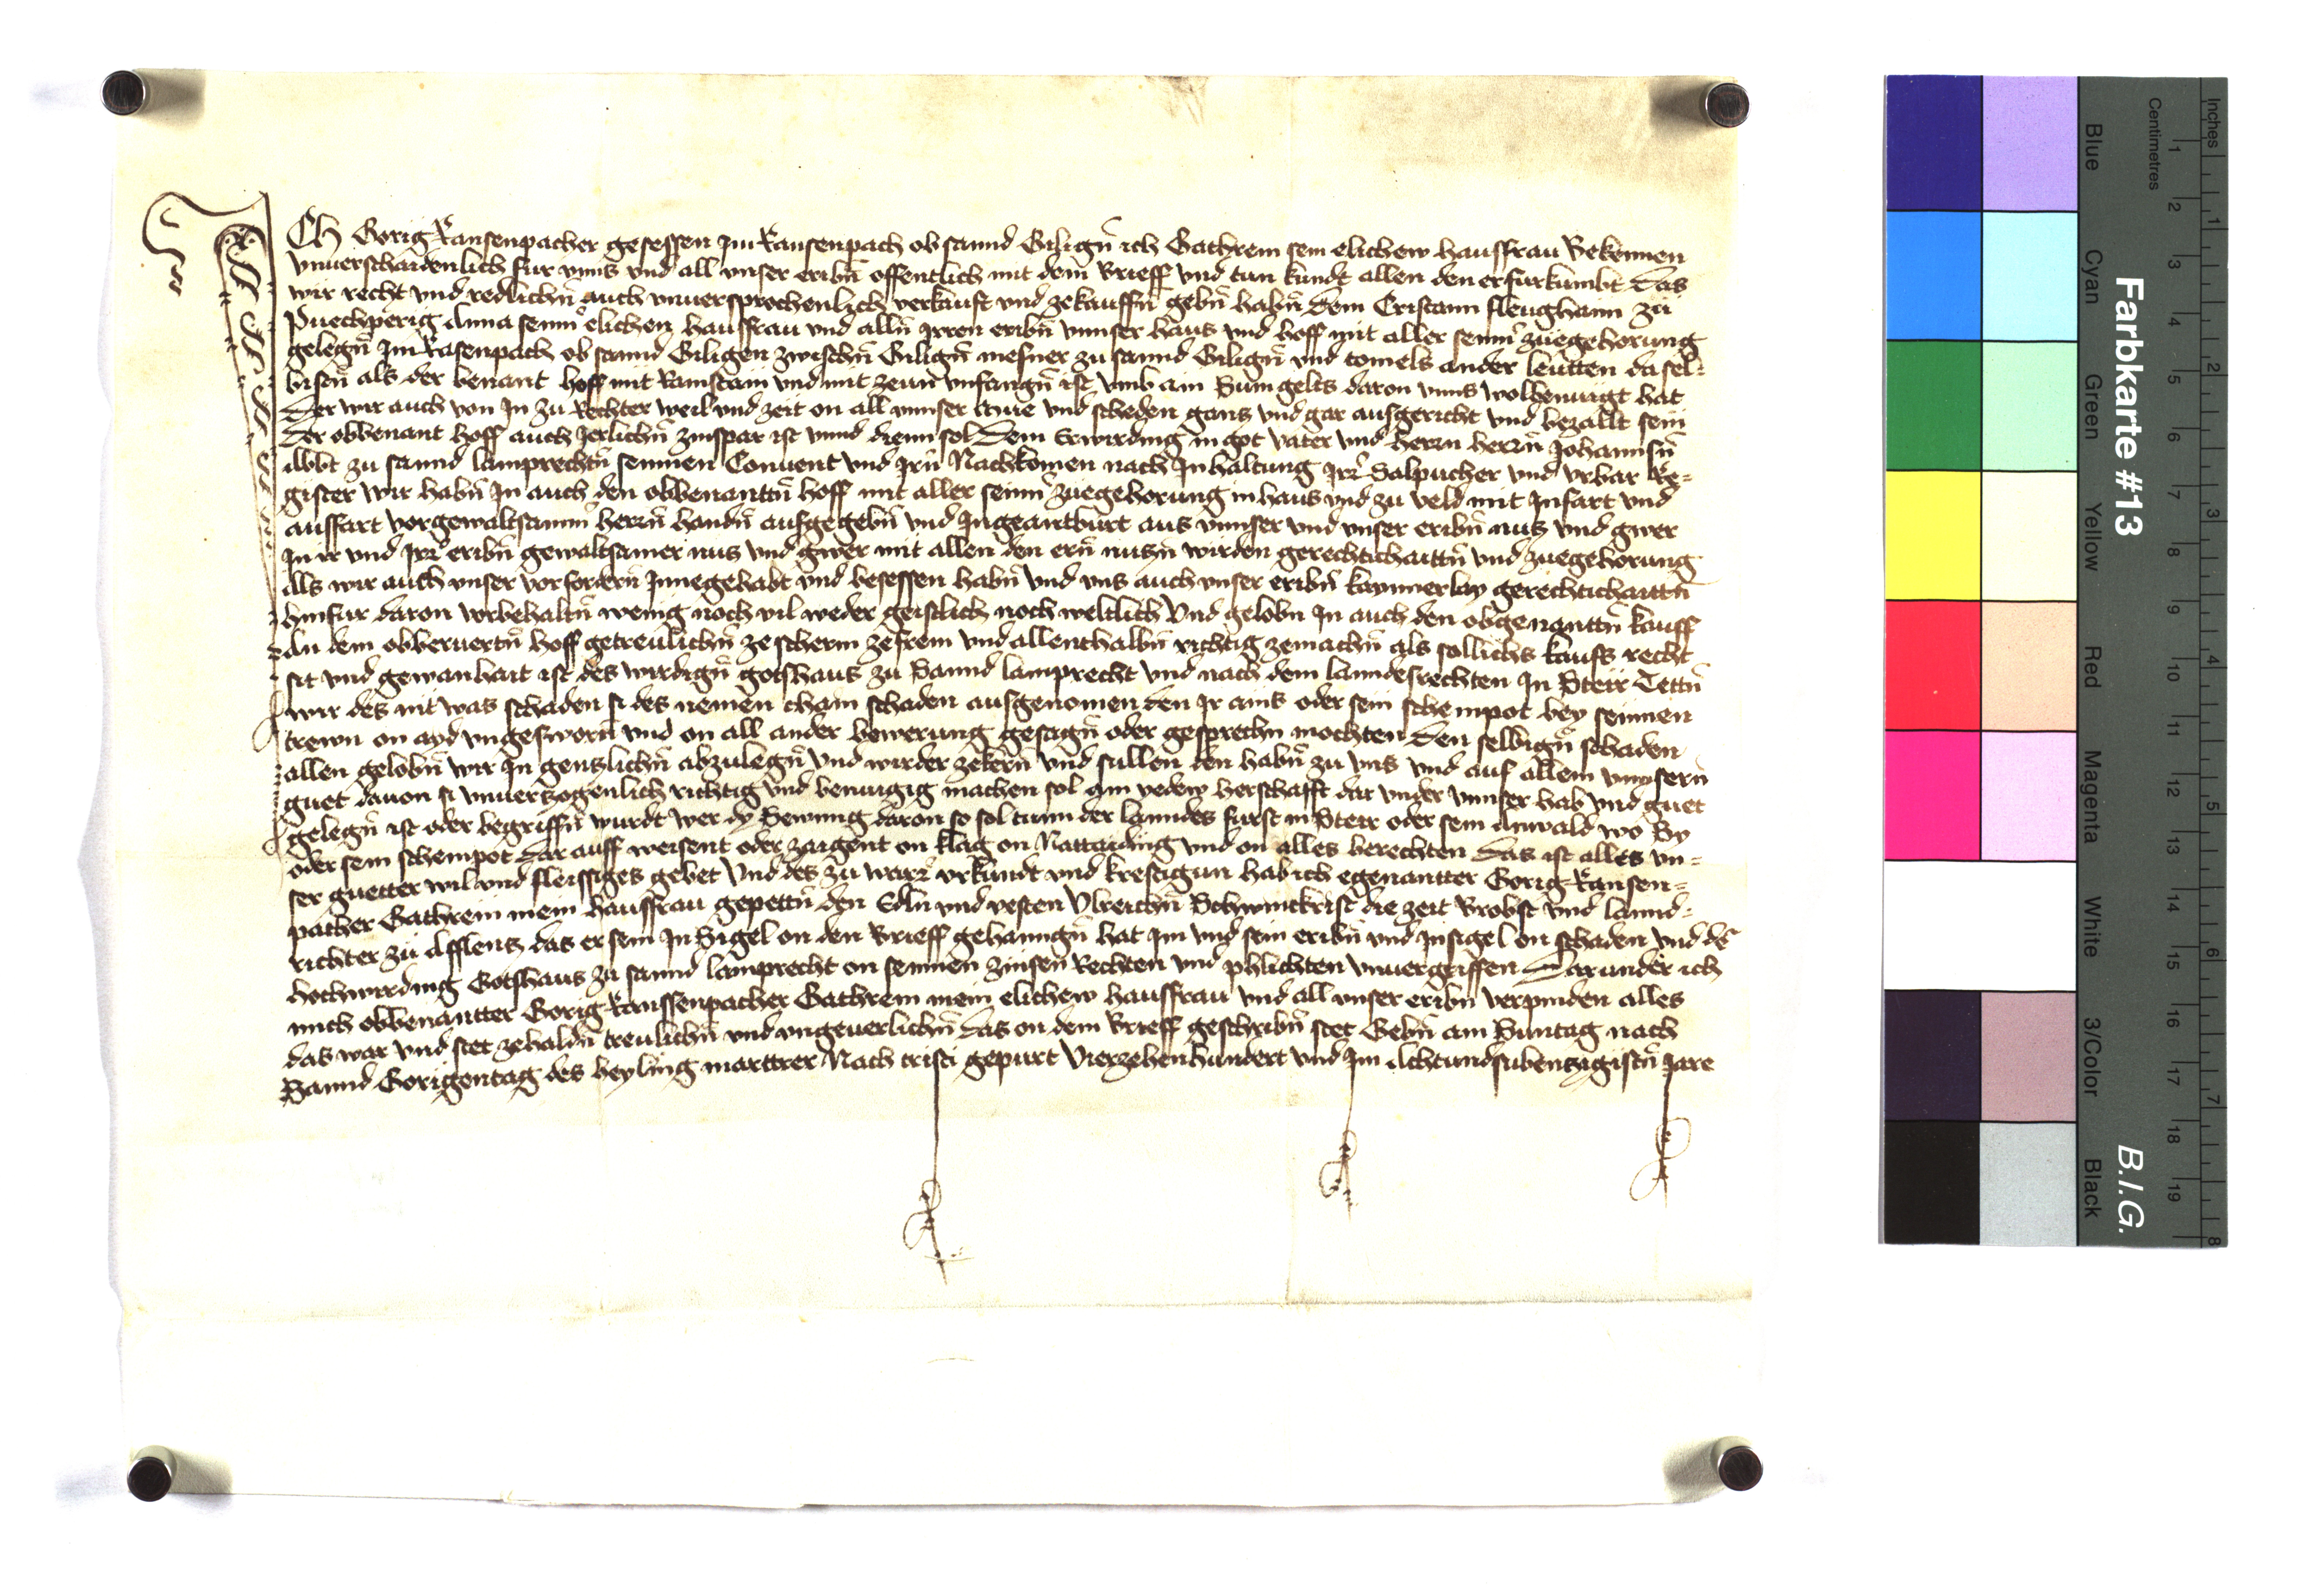 ICh Gorig Ransenpacher gesessen Im Ransenpach ob sannd Giligñ ich Gathrein sein elichew hausfrau Bekennen
vnuerschaidenlich fur vnns vnd all vnser eribñ offentlich mit dem brieff vnd tun kundt allen den er furkumbt Das
wir recht vnd redlichñ auch vnuersprochenlich verkauft vnd zekauffñ gebñ habñ Dem Cristann fleughann zu
Puechperig Anna seinñ elichen hausfrau vnd allñ Irren eribñ vnnser haus vnd hoff mit aller seinñ zuegehorung
gelegñ Im Rasenpach ob sannd Giligen zwischñ Giligñ mesner zu sannd Giligñ vnd tomels ander leutten dasel-
bisñ als der benant hoff mit Rainstain vnd mit zeun vnfangñ ist vmb ain Sum gelts daron vnns wolbenuigt hat
Der wir auch von In zu Rechter weil vnd zeit on all vnnser mue vnd scheden gantz vnd gar ausgericht vnd bezallt sein
Der obbenant hoff auch Jerlichñ zinspar ist vnnd dienn sol Dem Erwirding in got vater vnd herrn herrñ Johannsñ
Abbt zu sannd lamprechtñ seinnen Conuent vnd Irñ Nachkomen nach Inhaltung Irr Salpucher vnd vrbar Re-
gister wir habñ In auch den obbenanttñ hoff mit aller seinñ zuegehorung in haus vnd zu veld mit Infart vnd
ausffart vor gewaltsamm herrñ handñ aufgegebñ vnd Ingeantburt aus vnnser vnd vnser eribñ nutz vnd gwer
In ir vnd Irr eribñ gewaltsamer nutz vnd gwer mit allen den ern nutzñ wirden gerechtichaittñ vnd zuegehorung
Alls wir auch vnser vorfordern Innegehabt vnd besessen habñ vnd vns auch vnser eribñ kaynnerlay gerechtichaittñ
hinfur daron vorbehaltñ wenig noch vil weder geistlich noch weltlich Vnd gelobñ In auch den obgenanttñ kauff
An dem obberuertñ hoff getreulichñ ze scherm ze frein vnd allenthalbñ richtig zemachñ als sollichs kaufs recht
sit vnd gewanhait ist des wirdigñ gotshaus zu Sannd lamprecht vnd nach dem lanndesrechten In Steir Tettñ
wir des nit was schaden si des nemen chain schaden ausgenomen den Ir ains oder sein scheinpot bey seinnen
trewn on ayd vngesworñ vnd on all ander bewerung gesagñ oder gesprechñ mochten Den selbigñ schaden
allen gelobñ wir In gentzlichñ abzulegñ vnd wider zekerñ Vnd sullen den habñ zu vns vnd auf allem vnnsern
guet dauon si vnuertzogenlich richtig vnd benuigig machen sol ain yedew herschafft dar vnder vnnser hab vnd guet
gelegñ ist oder begriffñ wurdt wer dy Sewnng daron so sol tunn der lanndes furst in Steir oder sein Anwald wo Sy
oder sein scheinpot dar auff weisent oder zaigent on klag on Nattaiding vnd on alles berechten Das ist alles vn-
ser guetter wil vnd fleissiges gebet Vnd des zu warr vrkundt vnd krefftigun hab ich egenantter Gorig Ransen-
pacher Gathrein mein hausfrau gepettñ den Edln vnd vesten Vlreichñ Schwinckrist die zeit Brobst vnd lannd-
richter zu Afflentz das er sein InSigel on den brieff gehanngñ hat Im vnd sein eribñ vnd Insigel on schaden vnd de
hochwirding Gotshaus zu sannd lamprecht on seinnen zinsen Rechten vnd phlichten vnuergriffen Darunder ich
mich obbenantter Gorig Ranssenpacher Gathrein mein elichew hausfrau vnd all vnser eribñ verpinden alles
das war vnd stet zehaldñ treulichñ vnd vngeuerlichñ das on dem brieff geschribñ stet Gebñ am Suntag nach
Sannd Gorigentag des heyling marttrer Nach cristi gepurt Vierzehenhundert vnd Im Achtundsubentzigistñ Jare
Farbkarte #13
B.I.G.
Inches 1 2 3 4 5 6 7 8
Centimetres 1 2 3 4 5 6 7 8 9 10 11 12 13 14 15 16 17 18 19
Blue
Cyan
Green
Yellow
Red
Magenta
White
3/Color
Black